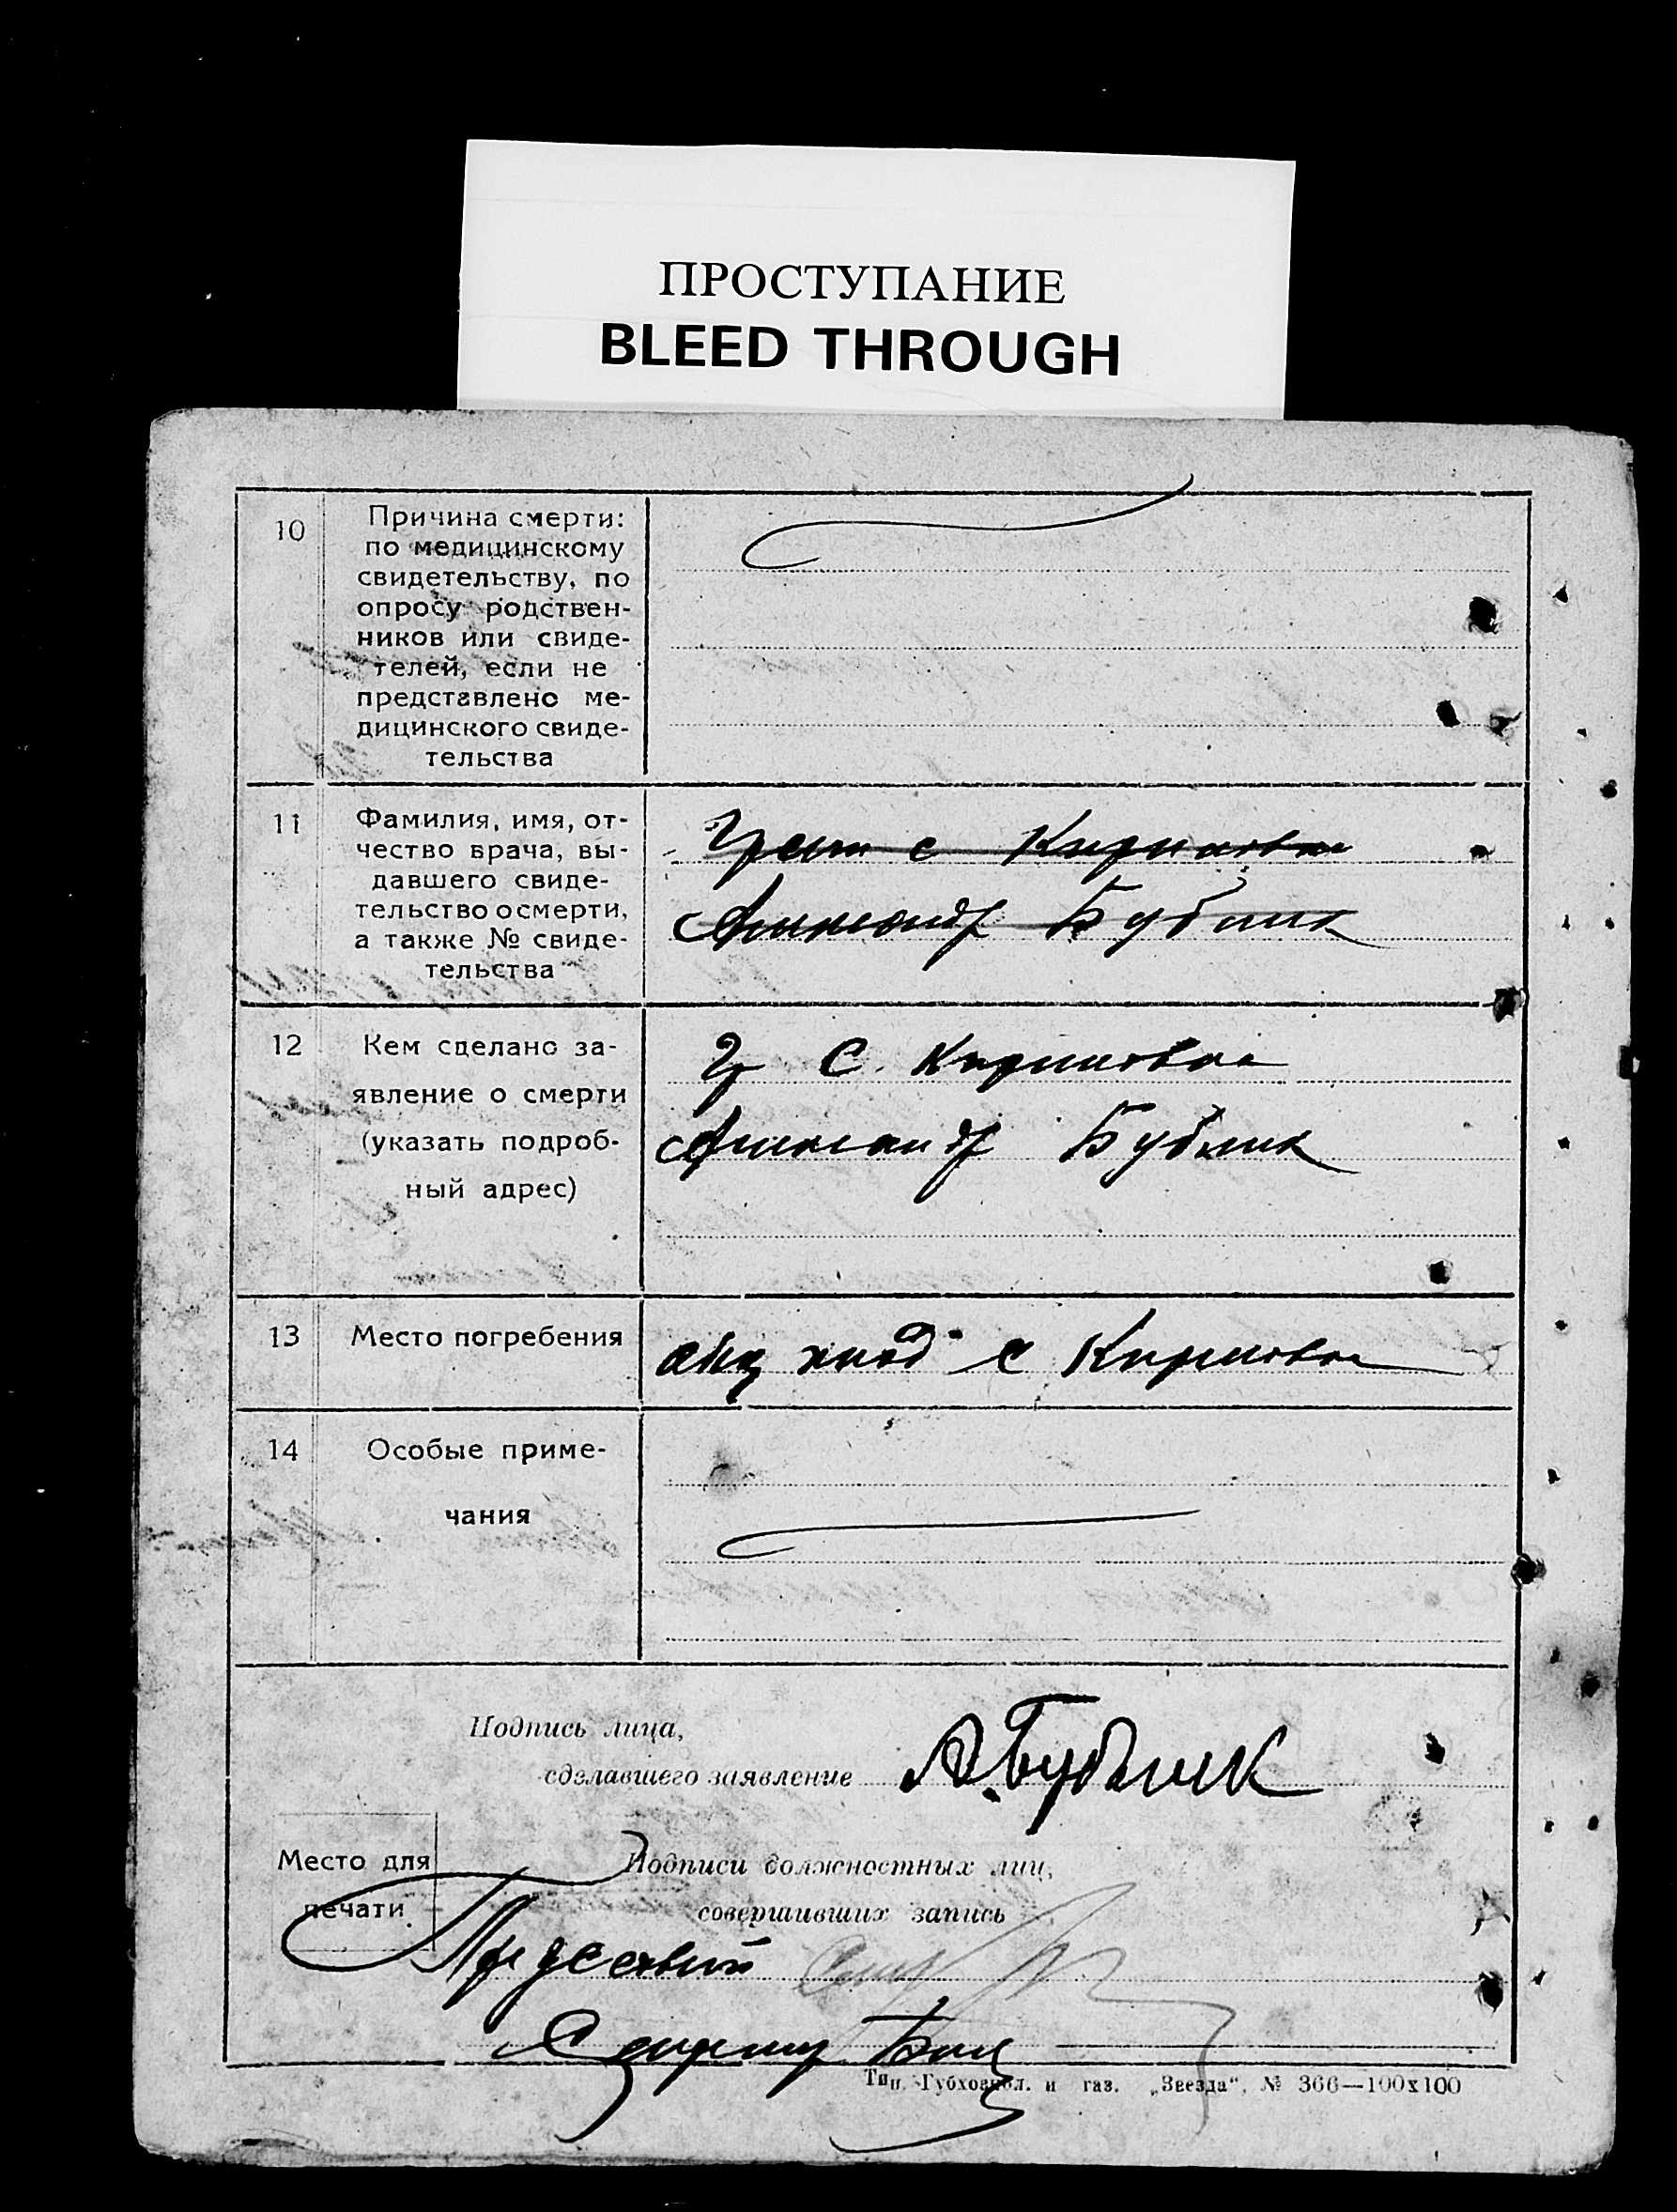 ПРОСТУПАНИЕ
BLEED THROUGH
10
Причина смерти:
по медицинскому
свидетельству, по
опросу родствен-
ников или свиде-
телей, если не
представлено ме-
дицинского свиде-
тельства
11
Фамилия, имя, от-
чество врача, вы-
давшего свиде-
тельство о смерти,
а также № свиде-
тельства
с
Александр Бублик
12
Кем сделано за-
явление о смерти
(указать подроб-
ный адрес)
Гр С.
Александр Бублик
13
Место погребения
клад с
14
Особые приме-
чания
Подпись лица,
сделавшего заявление
А. Бублик
Место для
печати
Подписи должностных лиц,
совершивших запись
Тип. Губхозпол. и газ. „Звезда“, № 366—100x100